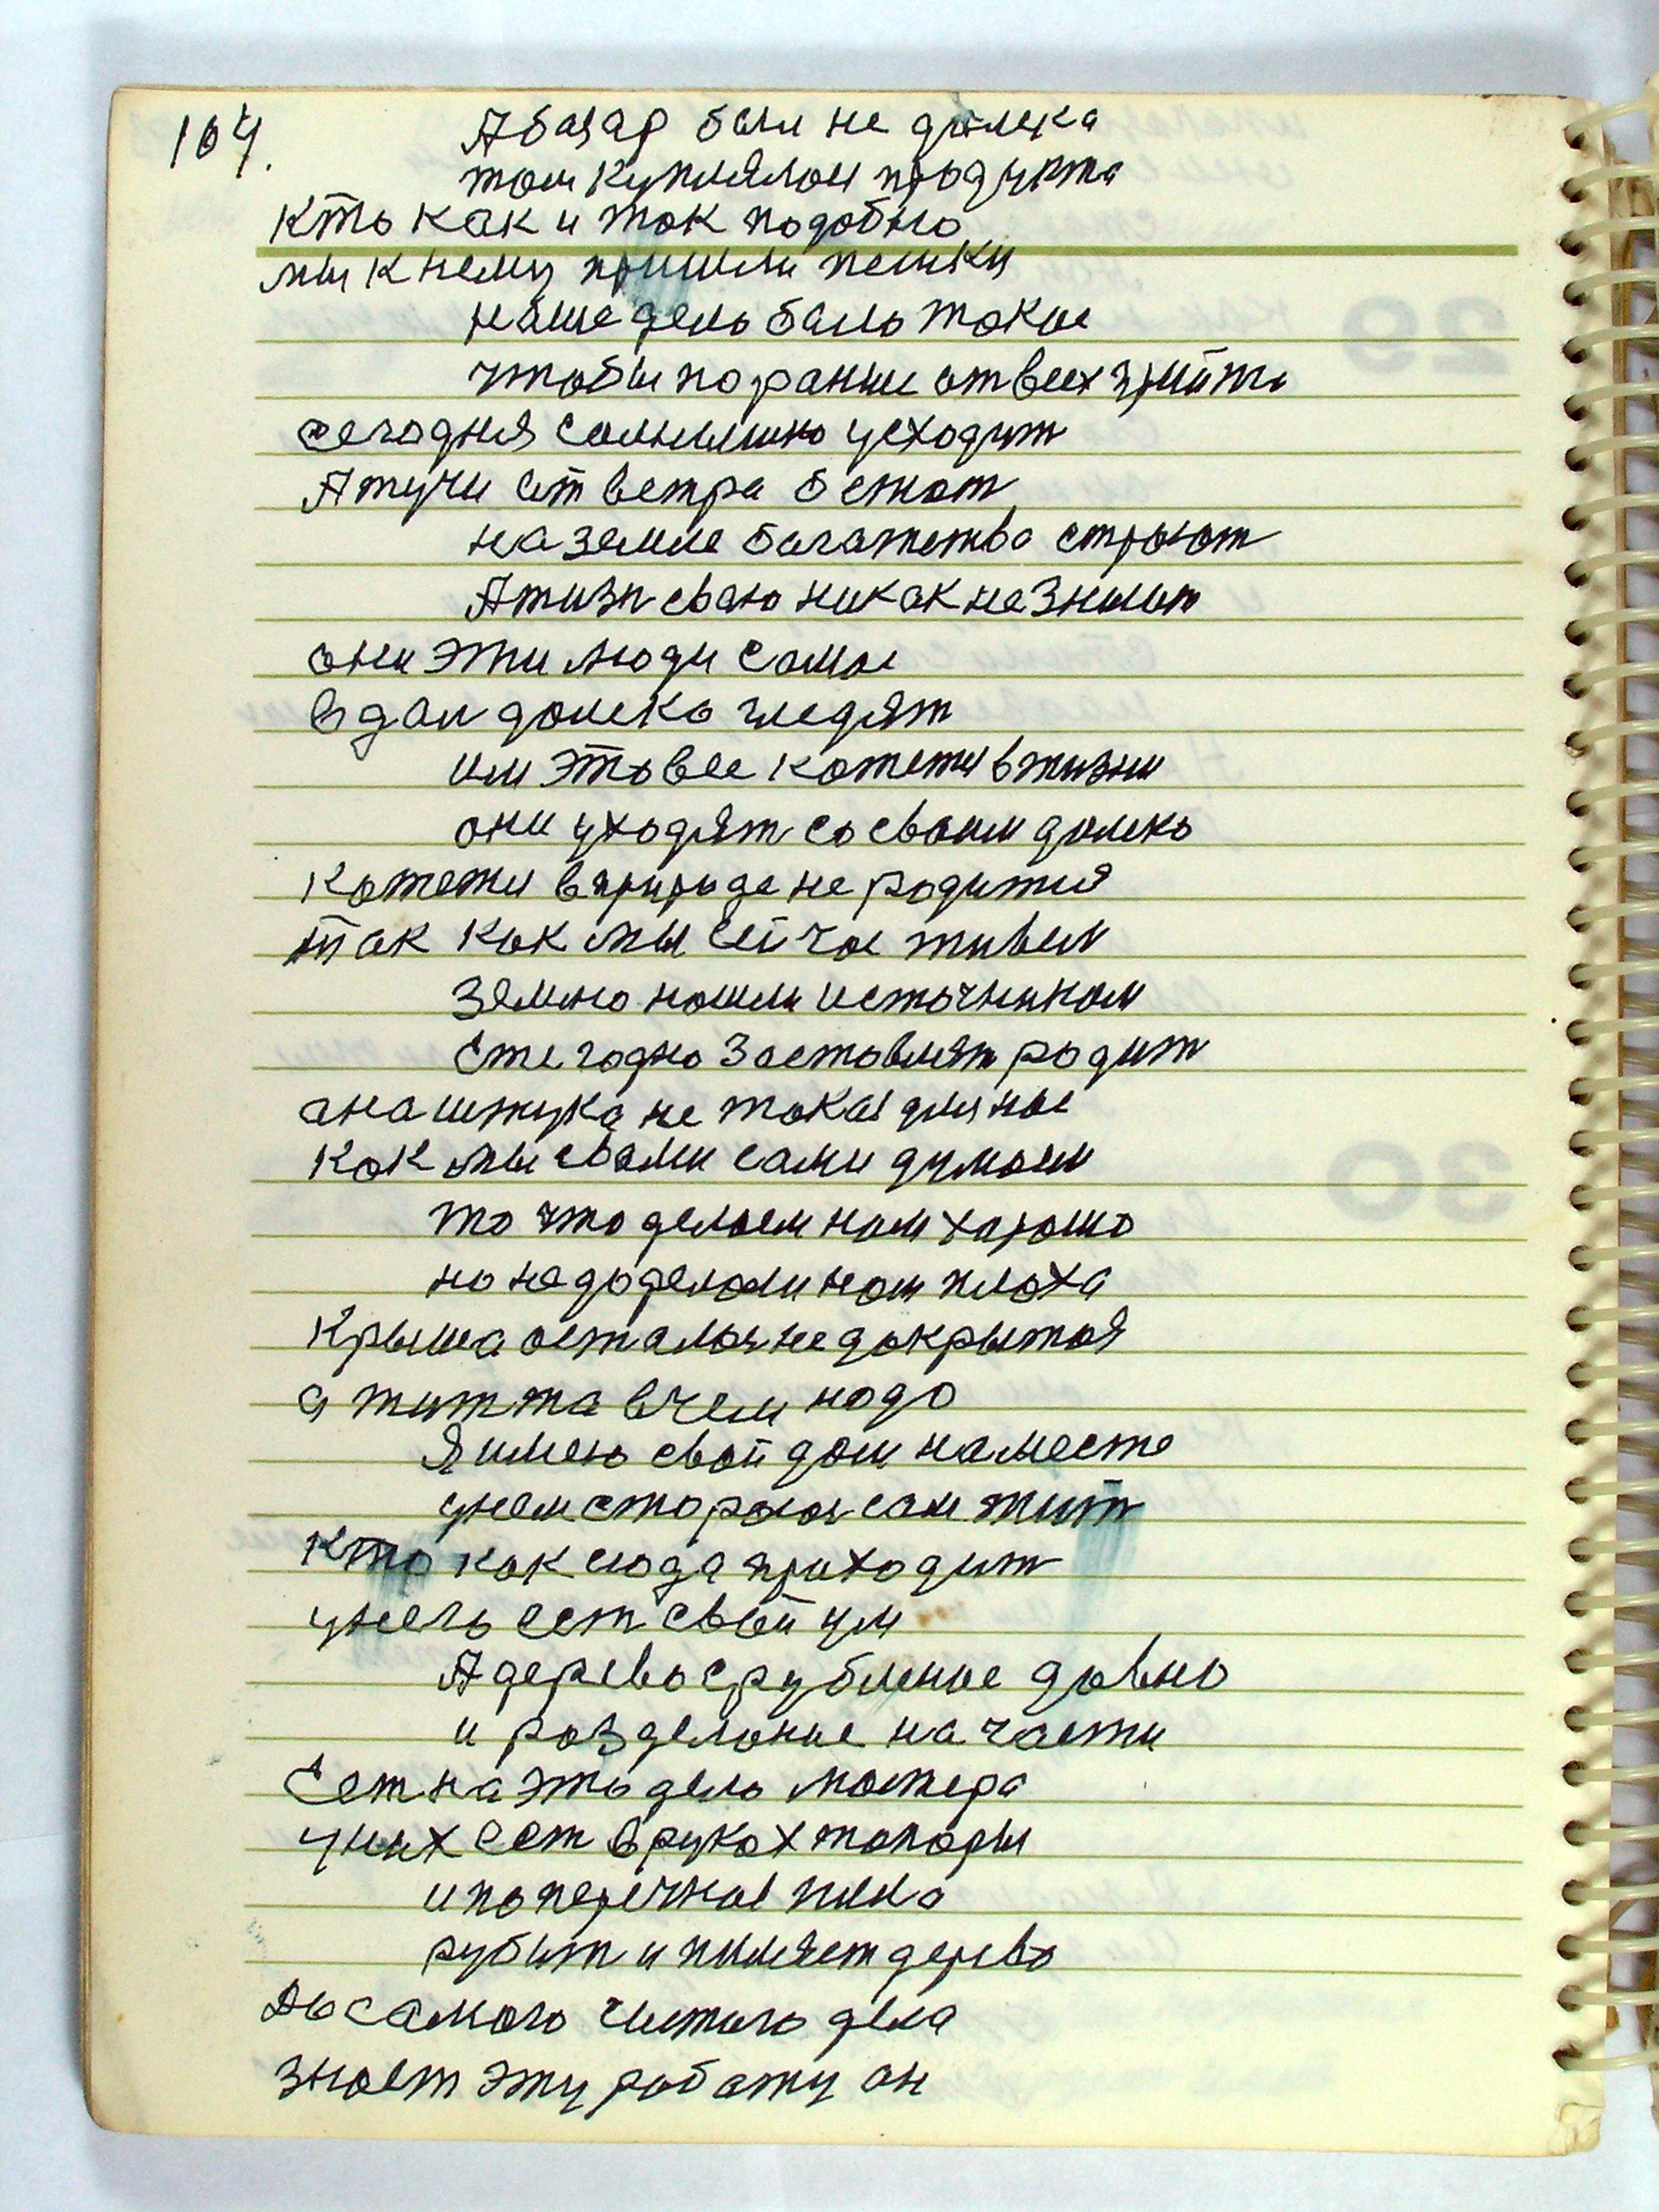 104.
А базар был не далека
там куплялом продукта
кто как и так подобно
мы к нему пришли пешки
наше дело было такое
чтобы по раньше от всех прийти
сегодня солнышко усходит
А тучи от ветра бежат
на земле богатство строют
А жизн сваю никак не знают
они эти люди самое
в дал далеко гледят
им это все кажется в жизни
они уходят со своим далеко
кажется в природе не родится
так как мы сейчас живем
Землю нашли источником
ежегодно заставлят родит
она штука не такая для нас
как мы свами сами думаем
то что делаем нам харошо
но не доделали нам плоха
Крыша осталься не докрытоя
а жит та в чем надо
Я имею свой дом на месте
у нем сторожом сам жит
Кто как сюда приходит
у него ест свой ум
А дерево срубленое довно
и разделаное на части
Ест на это дело мостера
у них ест в руках топоры
и поперечное пила
рубит и пиляет дерево
До самого чистого дела
знает эту работу он
29
30